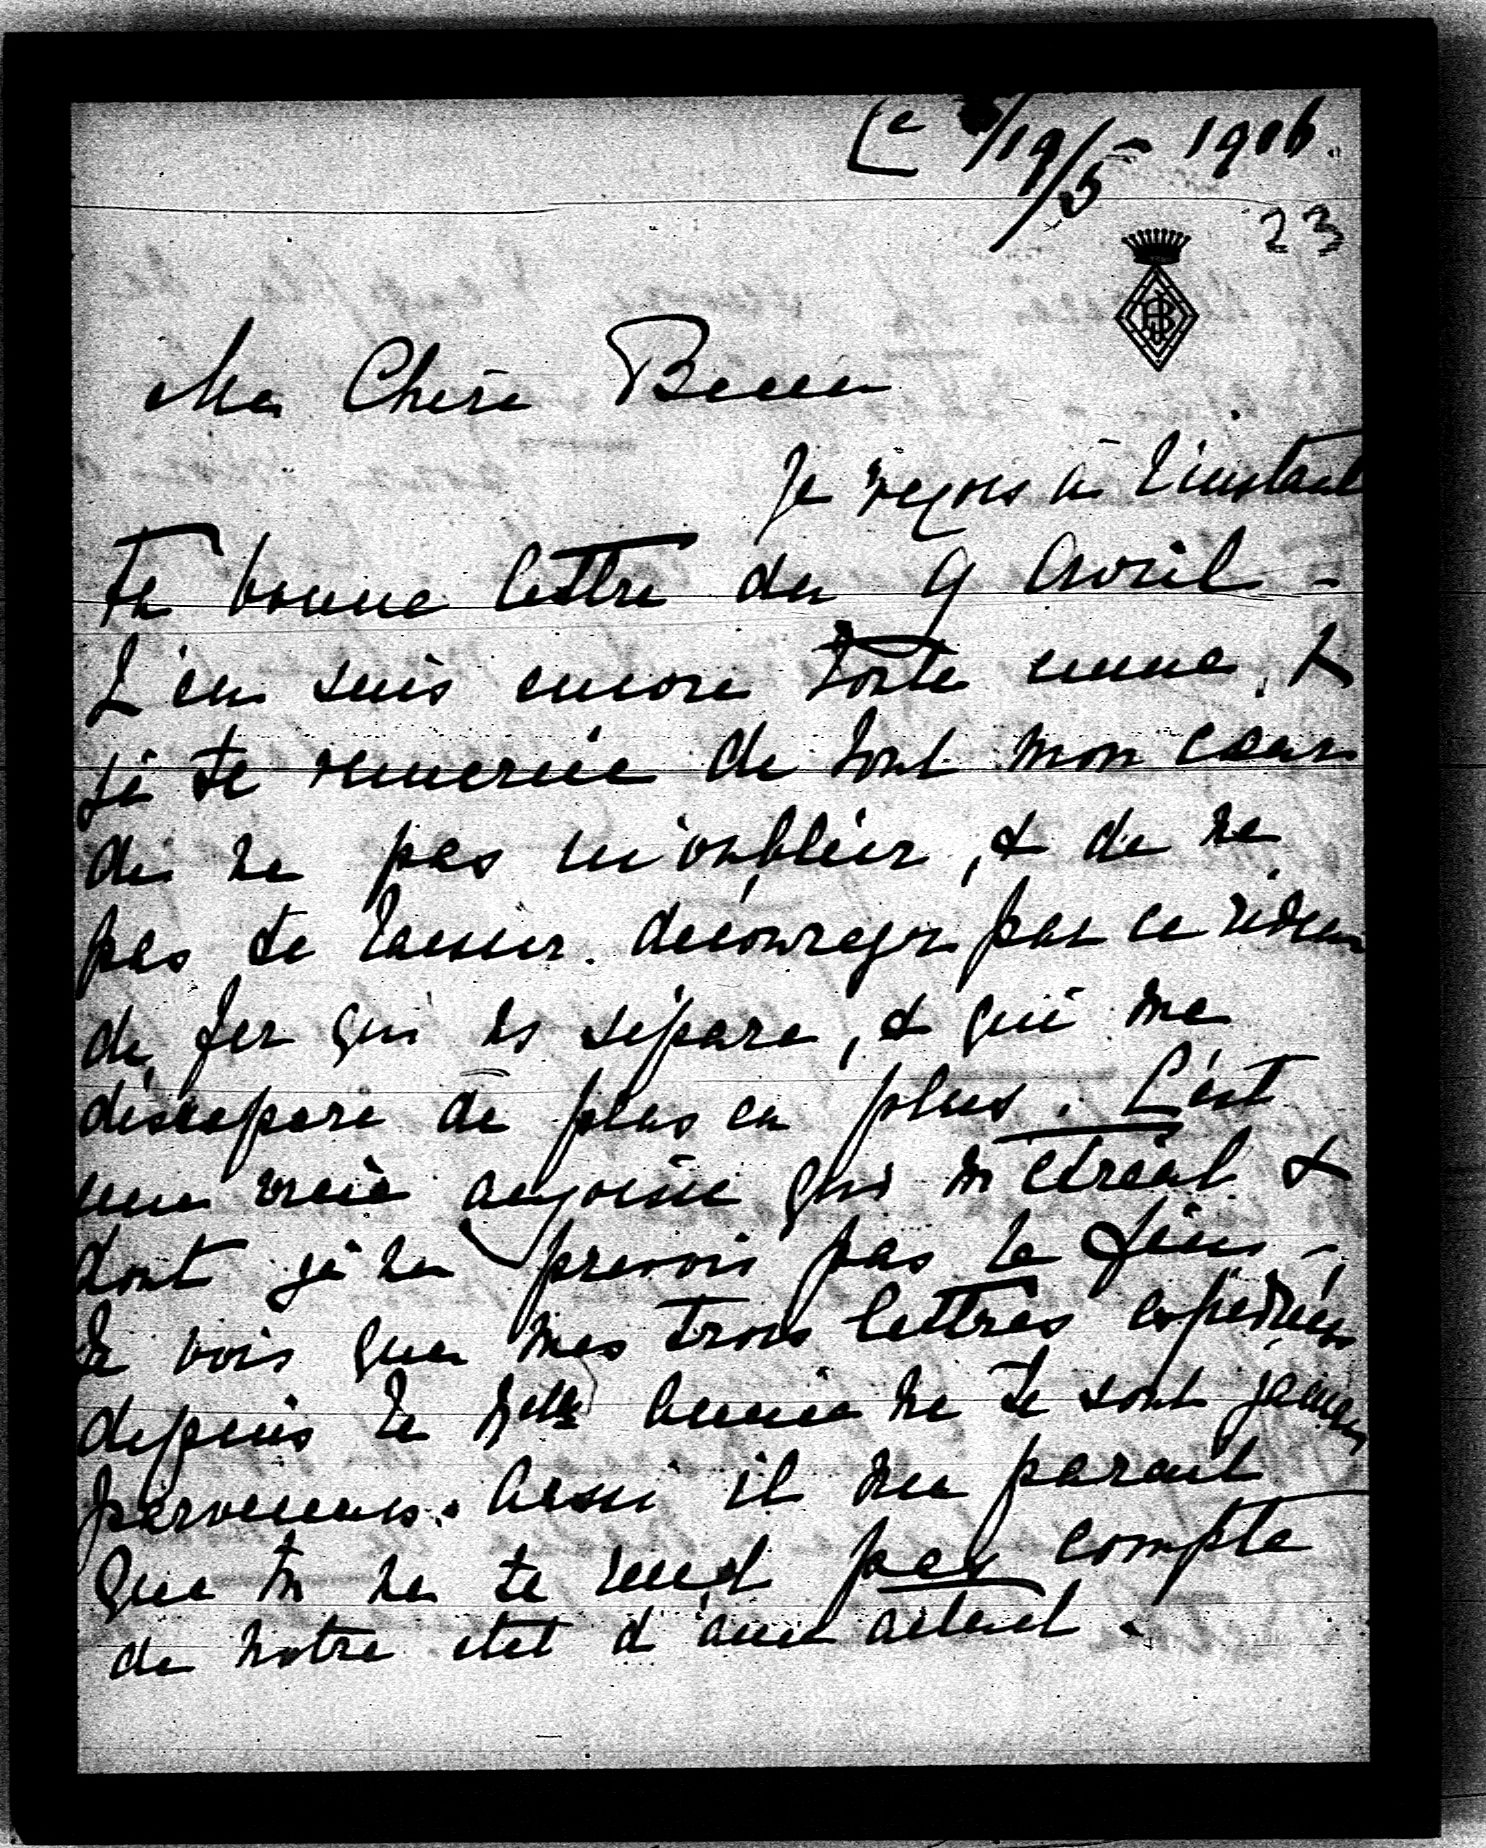 Le /19/5 - 1906.
23
Ma Chère
Je reçois à l'instant
ta bonne lettre du 9 Avril -
J'en suis encore toute émue, &
je te remercie de tout mon cœur
de ne pas m'oublier, & de ne
pas te laisser décourager par ce rideau
de fer qui ns sépare, & qui me
désespère de plus en plus. C'est
une vraie angoisse qui m'étreint &
dont je ne prévois pas la fin -
Je vois que mes trois lettres expédiées
depuis la Nelle Année ne te sont jamais
parvenues. Aussi il me parait
que tu ne te rend pas compte
de notre état d'âme actuel.